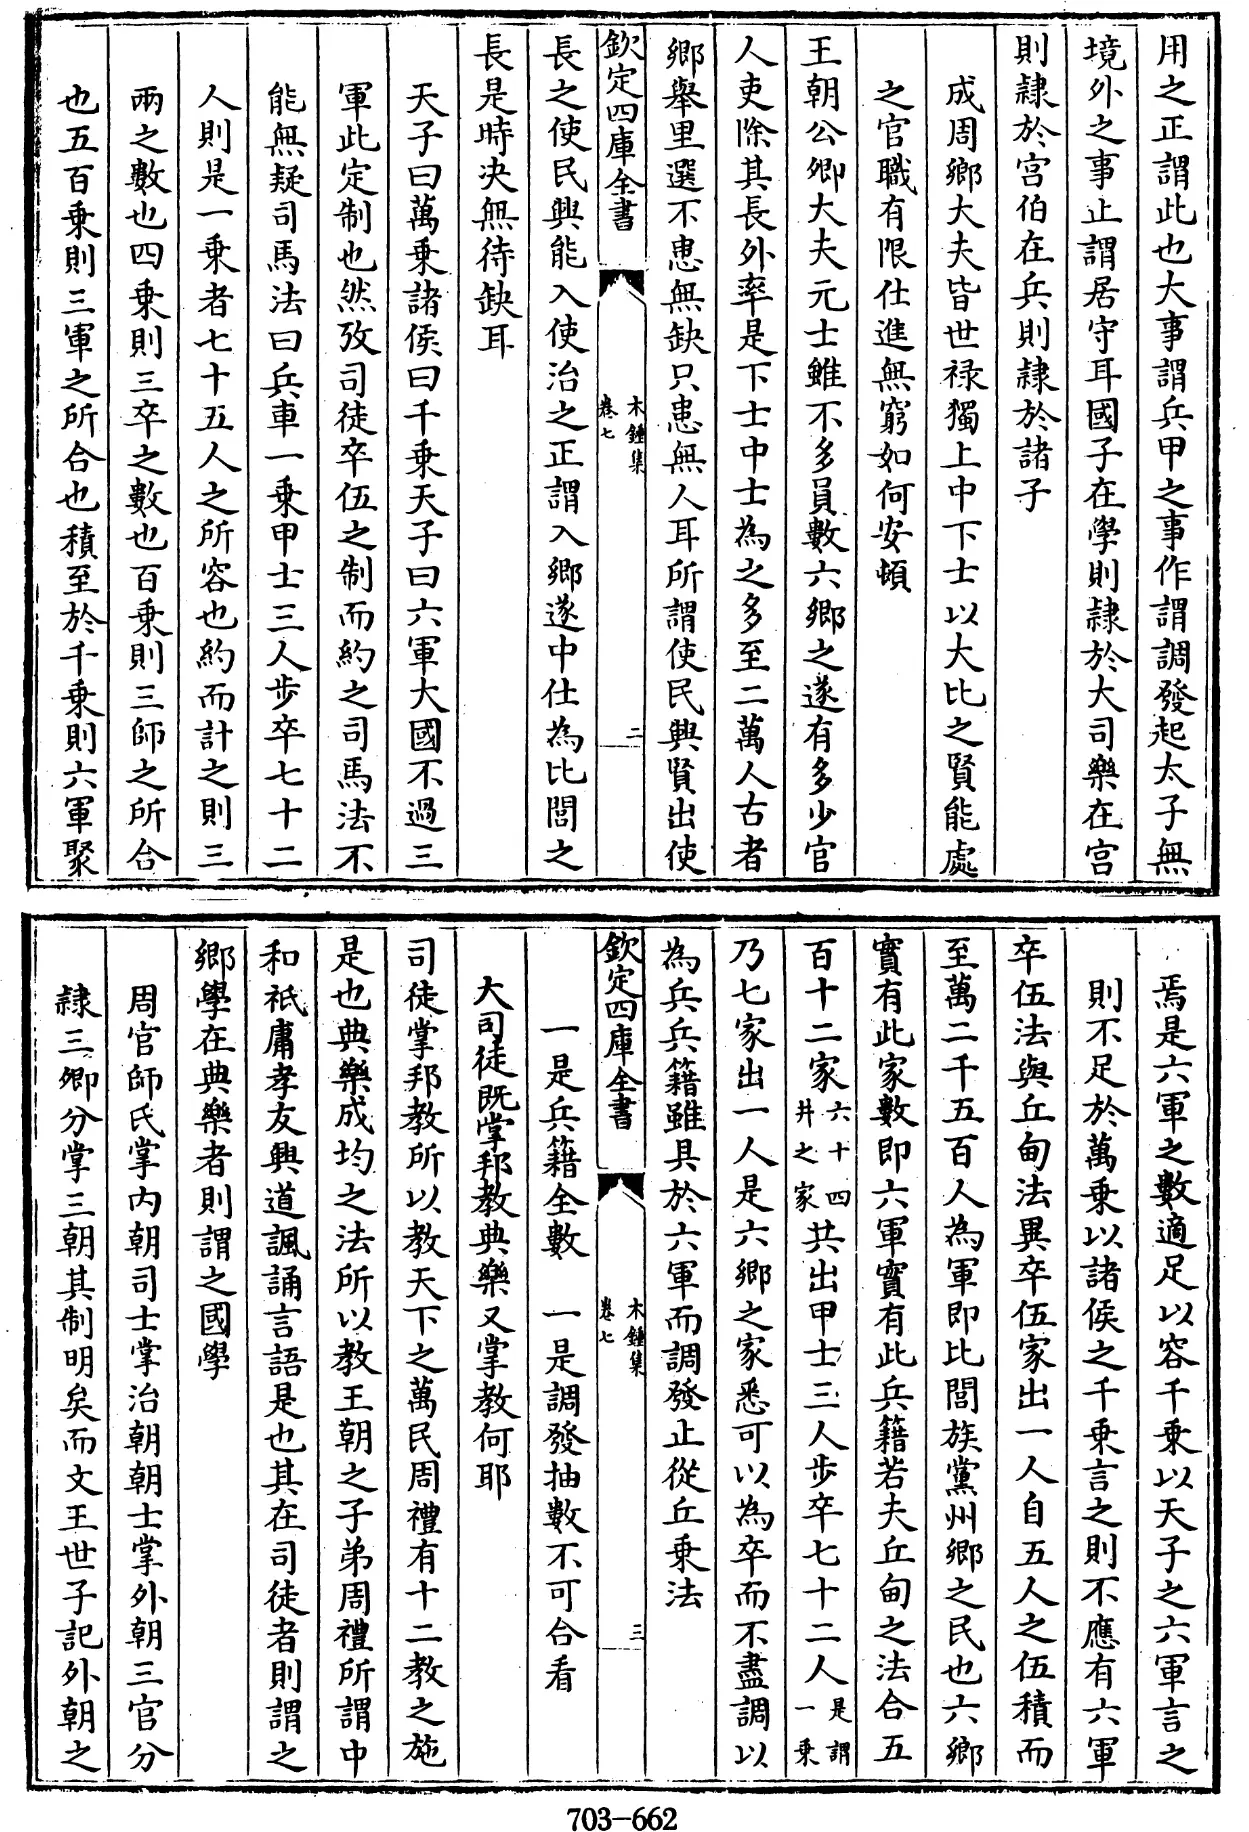 用之正謂此也大事謂兵甲之事作謂調發起太子無
境外之事止謂居守耳國子在學則隷於大司樂在宫
則隷於宫伯在兵則隷於諸子
成周鄉大夫皆世禄獨上中下士以大比之賢能處
之官職有限仕進無窮如何安頓
王朝公卿大夫元士雖不多員數六鄉之遂有多少官
人吏除其長外率是下士中士為之多至二萬人古者
鄉舉里選不患無缺只患無人耳所謂使民興賢出使
欽定四庫全書
木鍾集
卷七
二
長之使民興能入使治之正謂入鄉遂中仕為比閭之
長是時决無待缺耳
天子曰萬乗諸侯曰千乗天子曰六軍大國不過三
軍此定制也然攷司徒卒伍之制而約之司馬法不
能無疑司馬法曰兵車一乗甲士三人步卒七十二
人則是一乗者七十五人之所容也約而計之則三
兩之數也四乗則三卒之數也百乗則三師之所合
也五百乗則三軍之所合也積至於千乗則六軍聚
焉是六軍之數適足以容千乗以天子之六軍言之
則不足於萬乗以諸侯之千乗言之則不應有六軍
卒伍法與丘甸法異卒伍家出一人自五人之伍積而
至萬二千五百人為軍即比閭族黨州鄉之民也六鄉
實有此家數即六軍實有此兵籍若夫丘甸之法合五
百十二家六十四井之家共出甲士三人步卒七十二人是謂一乗
乃七家出一人是六鄉之家悉可以為卒而不盡調以
為兵兵籍雖具於六軍而調發止從丘乗法
欽定四庫全書
木鍾集
卷七
三
一是兵籍全數　一是調發抽數不可合看
大司徒既掌邦教典樂又掌教何耶
司徒掌邦教所以教天下之萬民周禮有十二教之施
是也典樂成均之法所以教王朝之子弟周禮所謂中
和祇庸孝友興道諷誦言語是也其在司徒者則謂之
鄉學在典樂者則謂之國學
周官師氏掌内朝司士掌治朝朝士掌外朝三官分
隷三卿分掌三朝其制明矣而文王世子記外朝之
703-662